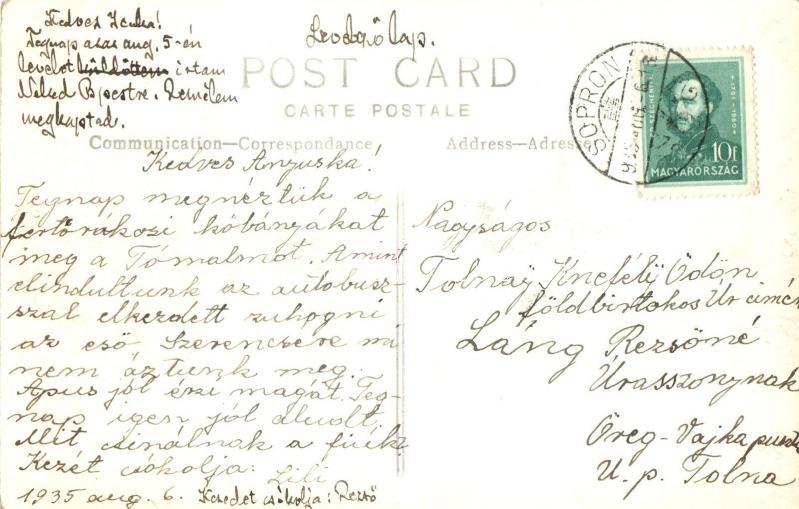 Kedves Icuka!
Tegnap azaz aug. 5-én
levelet küldöttem írtam
Neked Bpestre. Remélem
megkaptad.
Levelezőlap.
POST CARD
CARTE POSTALE
Communication—Correspondance
Address—Adresse
SOPRON
SZÉCHENYI
1791-1860
10f
MAGYARORSZÁG
Kedves Anyuska!
Tegnap megnéztük a
fertőrákosi kőbányákat
meg a Tómalmot. Amint
elindultunk az autóbusz-
szal elkezdett zuhogni
az eső. Szerencsére mi
nem áztunk meg.
Apus jól érzi magát. Teg-
nap igen jól aludt.
Mit csinálnak a fiúk?
Kezét csókolja:
Lili
1935 aug. 6. Kezedet csókolja: Rezső
Nagyságos
Tolnay Knefély Ödön
földbirtokos Úr címén
Láng Rezsőné
Úrasszonynak
Öreg-Vajka puszta
U. p. Tolna